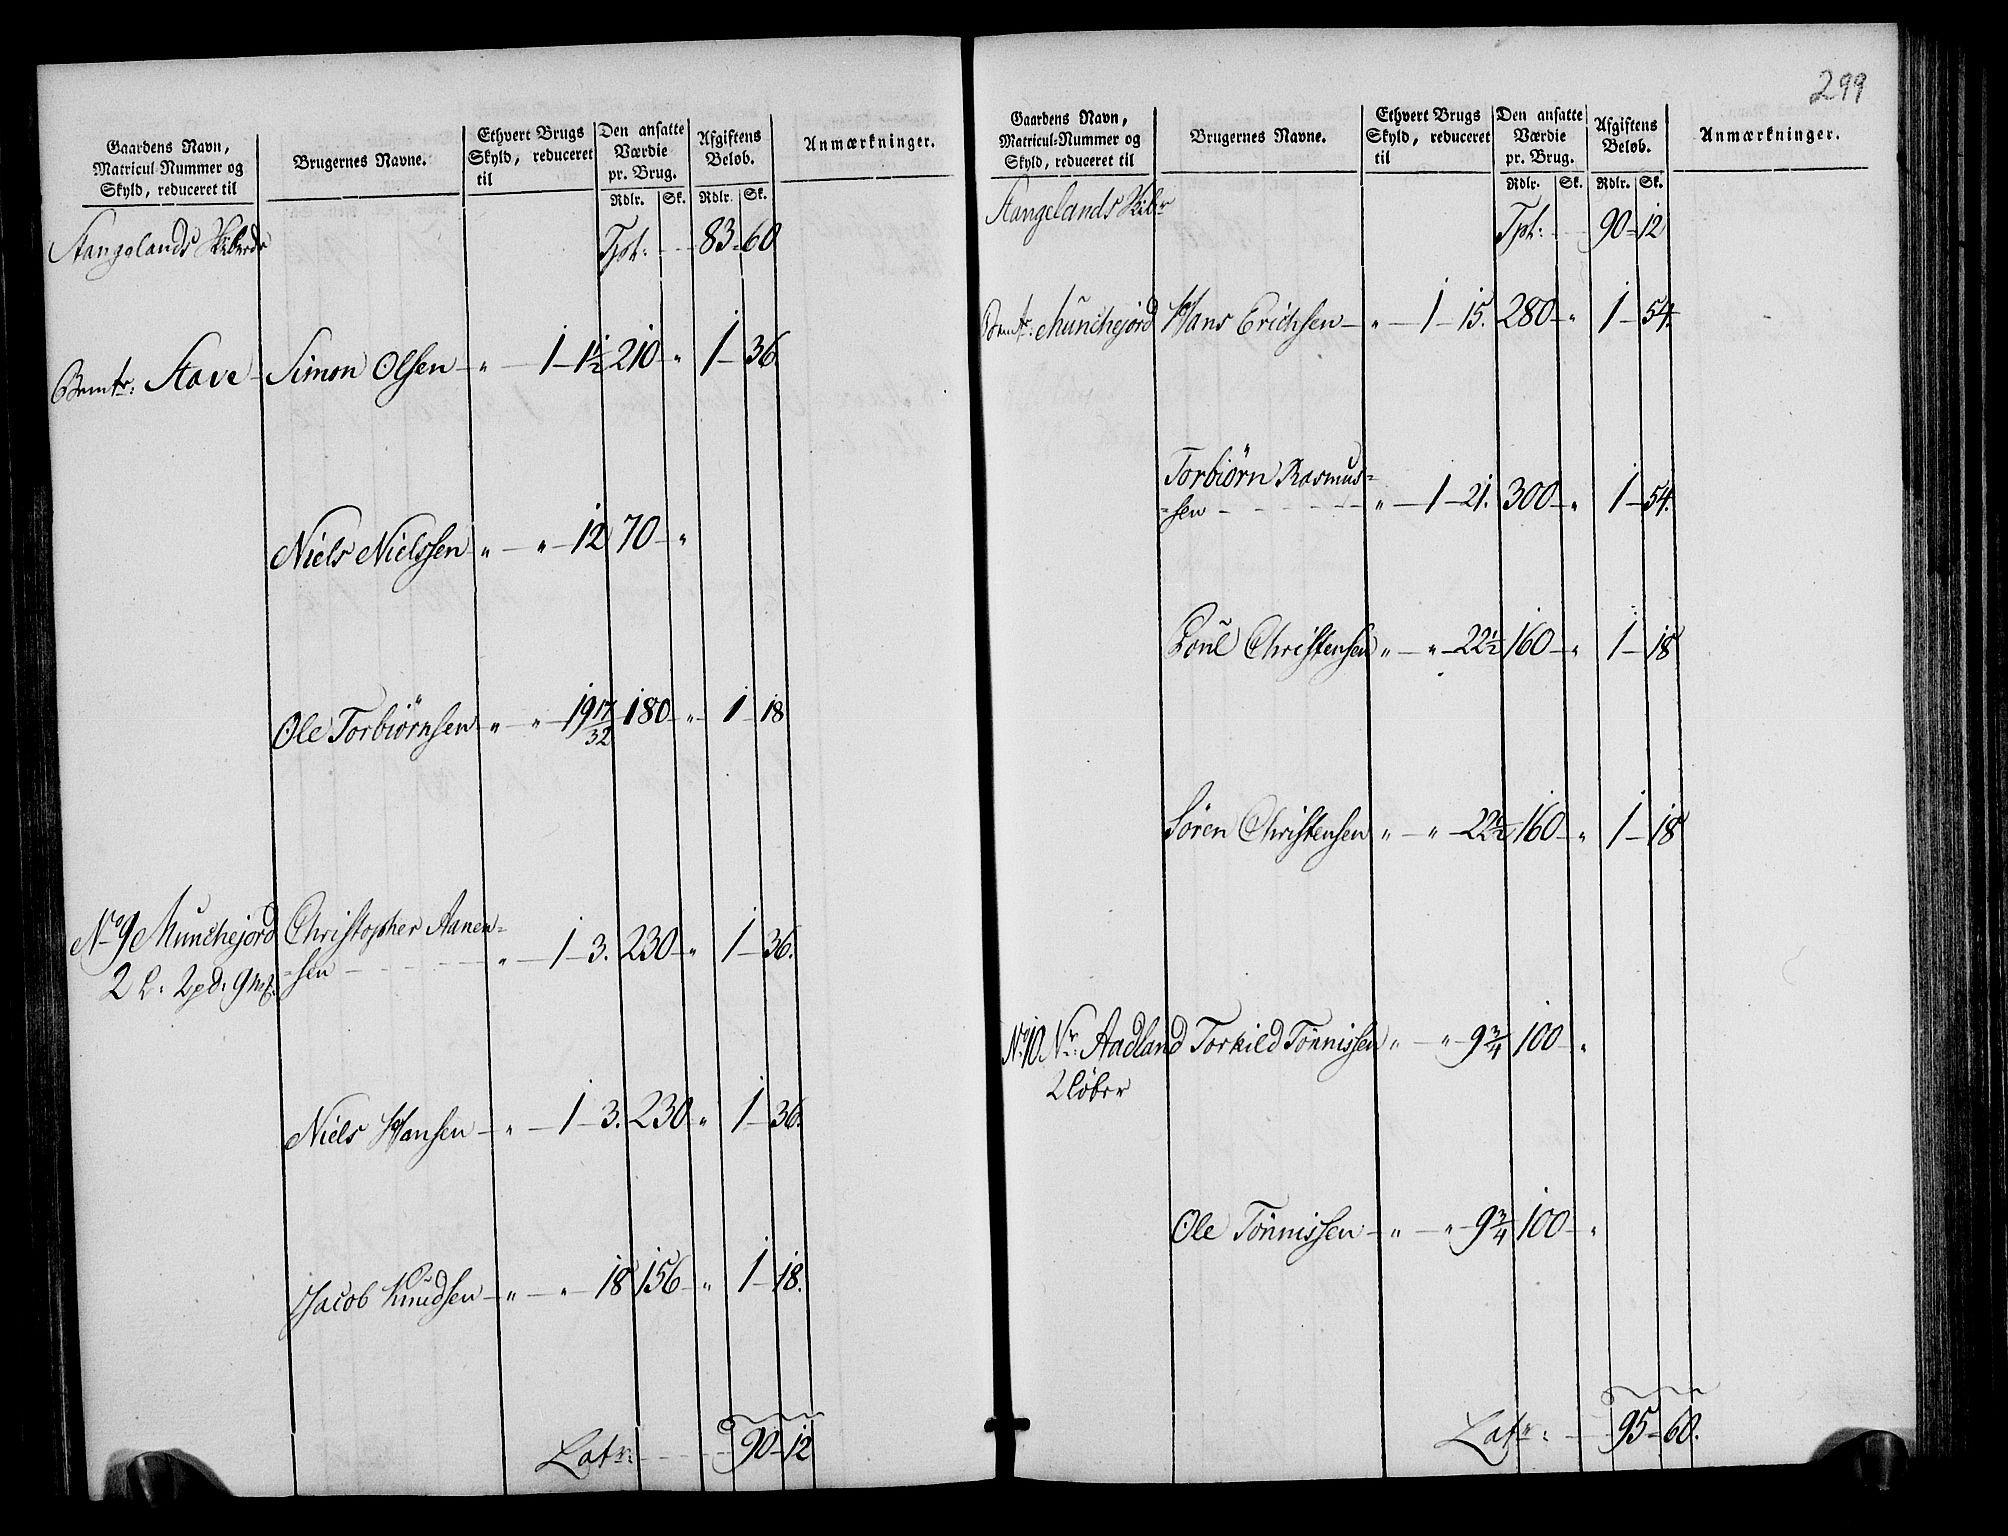 Gaardens Navn,
Matricul-Nummer og
Skyld, reduceret til
Brugernes Navne.
Ethvert Brugs
Skyld, reduceret
til
Den ansatte
Værdie
pr. Brug.
Rdlr. Sk.
Afgiftens
Beløb.
Rdlr. Sk.
Anmærkninger.
Stangelands Skibrede
Tpt: 83 - 60
Bemte: Stave - Simon Olsen - " - 1 - 1½ 210 - " 1 - 36.
Niels Nielssen " - " - 12 70 - "
Ole Torbiörnsen " - " - 19 17/32 180 - " 1 - 18
No 9 Munchejord Christopher Aanen=
2 L: 2 pd: 9 mk: =sen - - - " - 1 - 3. 230 - " 1 - 36.
Niels Hansen - " - 1 - 3. 230 " 1 - 36.
Jacob Knudsen - " - " - 18 156 - " 1 - 18.
Latr: 90 - 12
299
Gaardens Navn,
Matricul-Nummer og
Skyld, reduceret til
Brugernes Navne.
Ethvert Brugs
Skyld, reduceret
til
Den ansatte
Værdie
pr. Brug.
Rdlr. Sk.
Afgiftens
Beløb.
Rdlr. Sk.
Anmærkninger.
Stangelands Skibr
Tpt: 90 - 12
Bemte: Munchejord Hans Erichsen - " - 1 - 15. 280 - " 1 - 54.
Torbiörn Rasmus=
=sen - - - " - 1 - 21. 300 - " 1 - 54.
Poul Christensen " - " - 22½ 160 - " 1 - 18
Sören Christensen " - " - 22½ 160 - " 1 - 18
No 10. Nr: Aadland Torkild Tönnissen " - " - 9¾ 100 - "
2 löber
Ole Tönnissen - " - " - 9¾ 100 - "
Latr: 95 - 60.